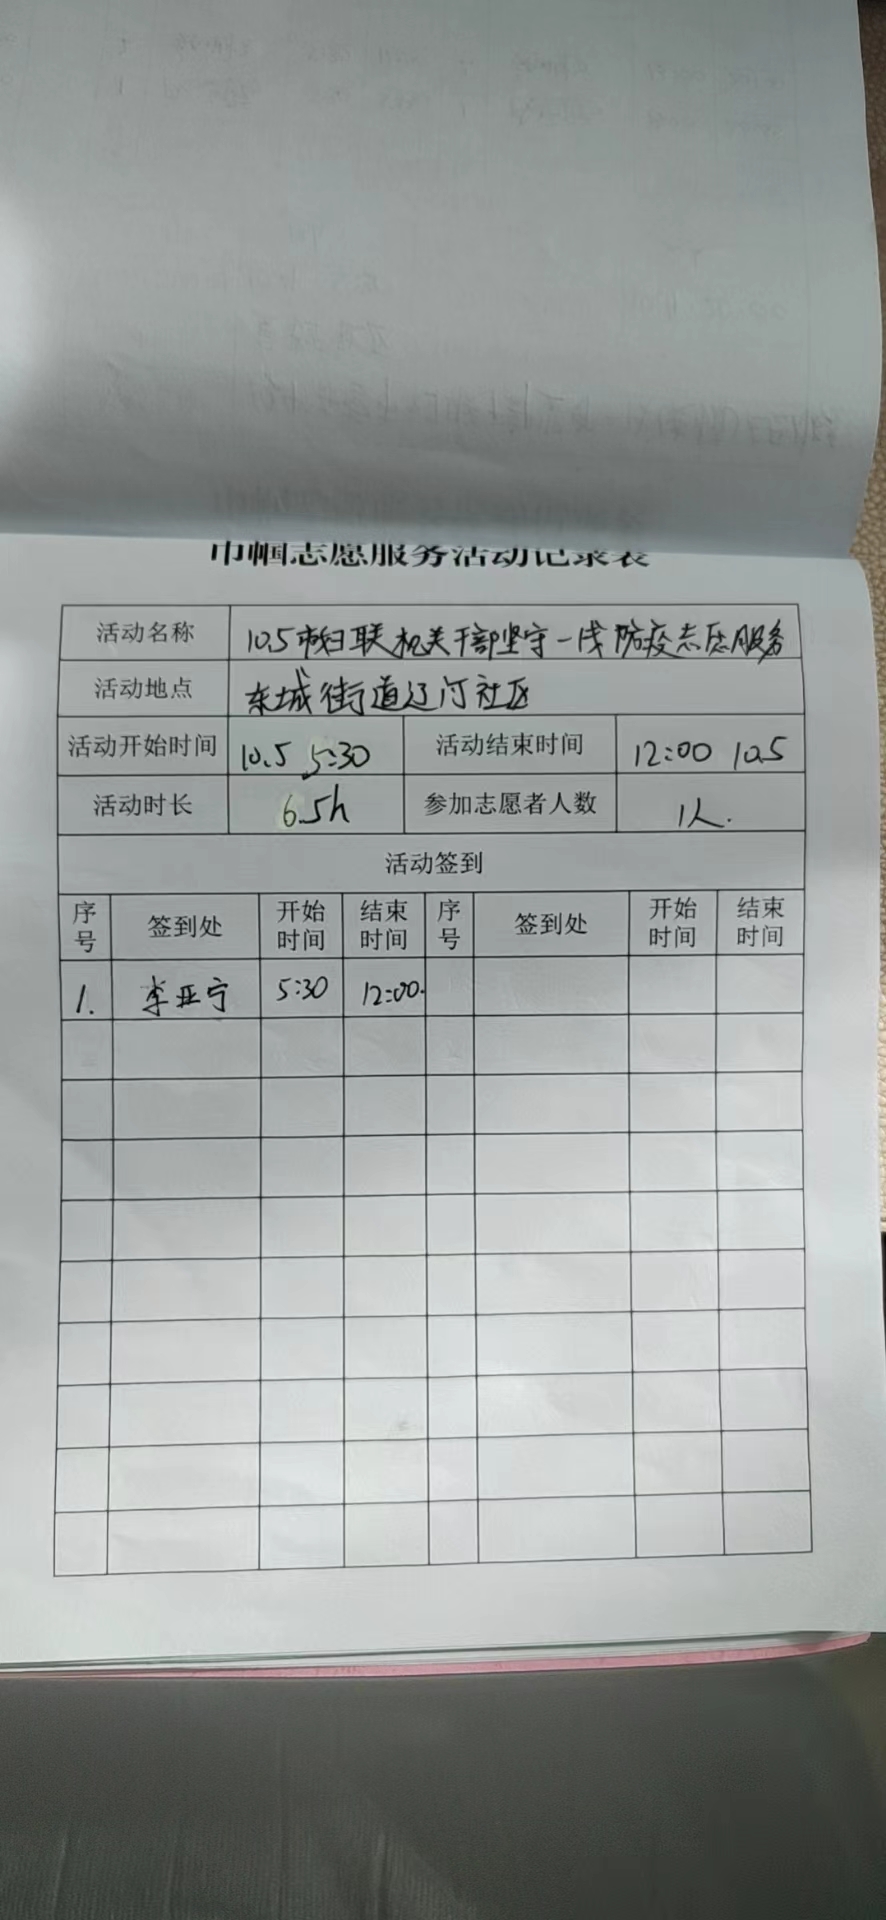 巾帼志愿服务活动记录表
活动名称 10.5市妇联机关干部坚守一线防疫志愿服务
活动地点 东城街道辽河社区
活动开始时间 10.5 5:30 活动结束时间 12:00 10.5
活动时长 6.5h 参加志愿者人数 1人.
活动签到
序号 签到处 开始时间 结束时间 序号 签到处 开始时间 结束时间
1. 李亚宁 5:30 12:00.